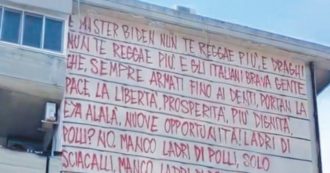 E MISTER BIDEN NUN TE REGGAE PIÙ, E DRAGHI
NUN TE REGGAE PIÙ E GLI ITALIANI BRAVA GENTE
CHE, SEMPRE ARMATI FINO AI DENTI, PORTAN LA
PACE, LA LIBERTÀ, PROSPERITÀ, PIÙ DIGNITÀ,
EJA ALALÀ, NUOVE OPPORTUNITÀ! LADRI DI
POLLI? NO, MANCO LADRI DI POLLI, SOLO
SCIACALLI, MANCO LADRI DI